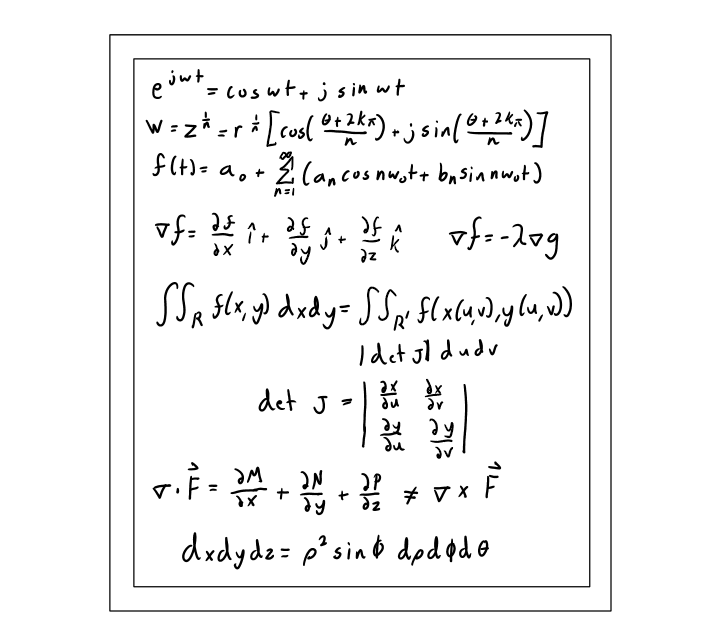 e^{jwt} = cos wt + j sin wt
W = z^{1/n} = r^{1/n} [cos((θ + 2kπ)/n) + j sin((θ + 2kπ)/n)]
f(t) = a₀ + ∑_{n=1}^{∞} (aₙ cos nw₀t + bₙ sin nw₀t)
∇f = ∂f/∂x î + ∂f/∂y ĵ + ∂f/∂z k̂ ∇f = -λ∇g
∬_R f(x,y) dxdy = ∬_{R'} f(x(u,v), y(u,v))
|det J| dudv
det J = | ∂x/∂u ∂x/∂v |
| ∂y/∂u ∂y/∂v |
∇ · F⃗ = ∂M/∂x + ∂N/∂y + ∂P/∂z ≠ ∇ × F⃗
dxdydz = ρ² sin ϕ dρdϕdθ